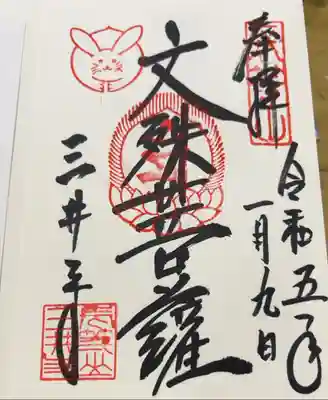 奉拝
令和五年
一月九日
文殊菩薩
三井寺